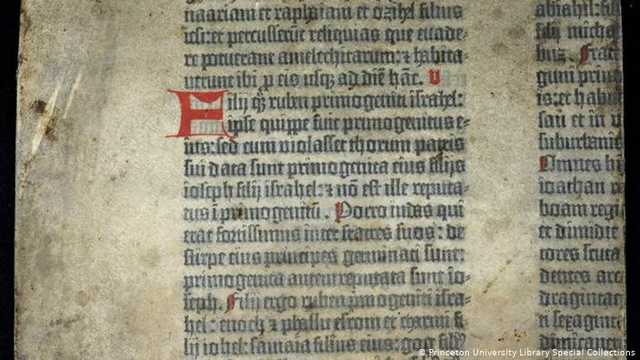 naariam et raphaiam et ozihel filios
iesi: et percusserūt reliquias que euade-
re potuerant amelechitarum: et habita-
uerunt ibi p eis usq; ad diē hāc. V
Filij q; ruben primogeniti israhel:
ipse quippe fuit primogenitus e-
ius: sed cum violasset thorum patris
sui data sunt primogenita eius filijs
ioseph filij israhel: et nō est ille reputa-
tus ī primogenitū. Porro iudas qui
erat fortissimus inter fratres suos: de
stirpe eius principes germinati sunt:
primogenita autem reputata sunt io-
seph. Filij ergo ruben primogeniti isra-
hel: enoch et phallu esrom et charmi. fi-
lij iohel: samaia filius eius: gog filiꝰ
abiahil: fil
filij michel
buz. Fratre
guni princ
is: et habit
san et in v
suburbanis
Omnes hi
ioathan re
boam regi
et dimidie
tores scuta
dentes arc
draginta
n sexaginta
© Princeton University Library Special Collections